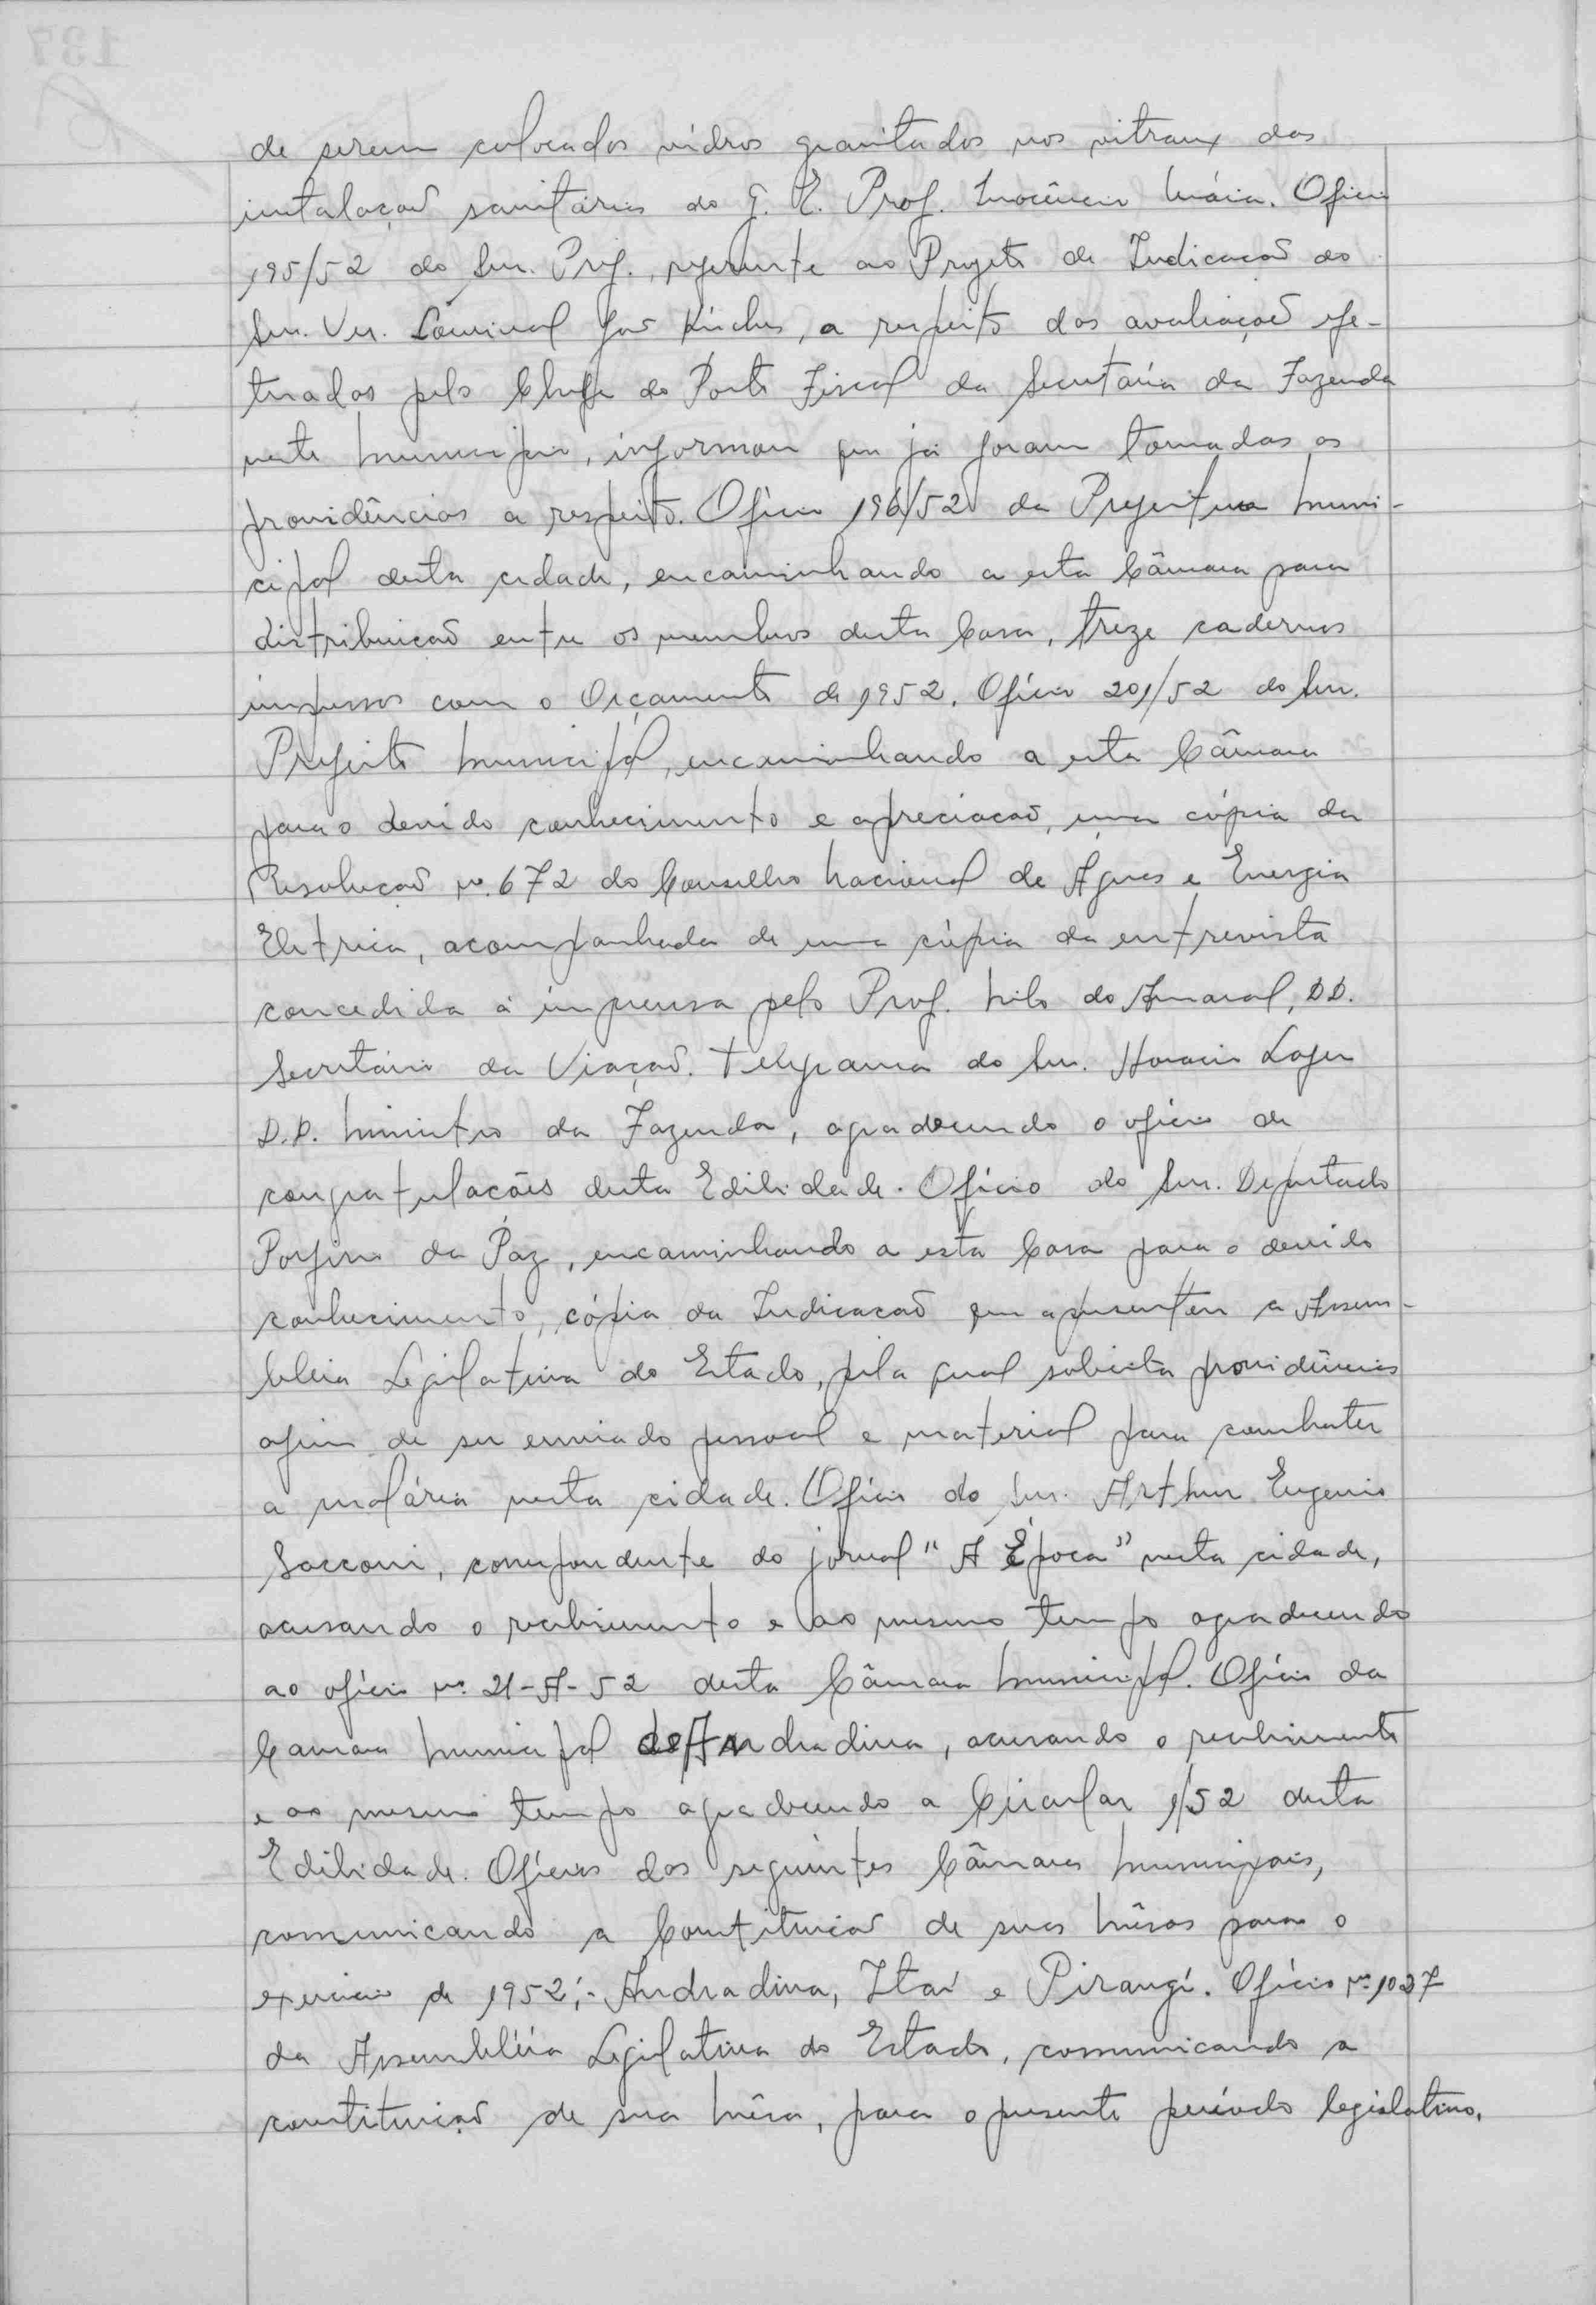 de serem colocados vidros granitados nos vitraux das
instalaçoẽ sanitárias do G. E. Prof. Inocêncio Maia. Oficio
195/52 do Snr. Pref., referente ao Projeto de Indicacaõ do
Snr. Ver. Lourival a respeito das avaliaçoẽ efe-
tuadas pelo Chefe do Posto Fiscal da Secretaria da Fazenda
neste Municipio, informou que já foram tomadas as
providências a respeito. Ofício 196/52 da Prefeitura Muni-
cipal desta cidade, encaminhando a esta Câmara para
distribuicaõ entre os membros desta Casa, treze cadernos
impressos com o Orçamento de 1952. Ofício 201/52 do Snr.
Prefeito Municipal, encaminhando a esta Câmara
para o devido conhecimento e apreciacaõ, uma cópia da
Resolucaõ nº. 672 do Conselho Nacional de Águas e Energia
Eletrica, acompanhada de uma cópia da entrevista
concedida á imprensa pelo Prof. Nilo do Amaral, DD.
Secretário da Viaçaõ. Telegrama do Snr. Horacio Lafer
D.D. Ministro da Fazenda, agradecendo o ofício de
congratulacões desta Edilidade. Ofício do Snr. Deputado
Porfirio da Paz, encaminhando a esta Casa para o devido
conhecimento, cópia da Indicacaõ que apresentou a Assem-
bleia Legislativa do Estado, pela qual solicita providências
afim de ser enviado pessoal e material para combater
a malária nesta cidade. Ofício do Snr. Arthur Eugenio
Sacconi, correspondente do jornal "A Época" nesta cidade,
acusando o recebimento e ao mesmo tempo agradecendo
ao ofício nº. 21-A-52 desta Câmara Municipal. Ofício da
Camara Municipal de Andradina, acusando o recebimento
e ao mesmo tempo agradecendo a Circular 1/52 desta
Edilidade. Ofícios das seguintes Câmaras Municipais,
comunicando a Constituicaõ de suas Mêsas para o
exercicio de 1952;- Andradina, Itaí e Pirangí. Ofício nº. 1027
da Assembléia Legislativa do Estado, comunicando a
constituiçaõ de sua Mêsa, para o presente período legislativo.